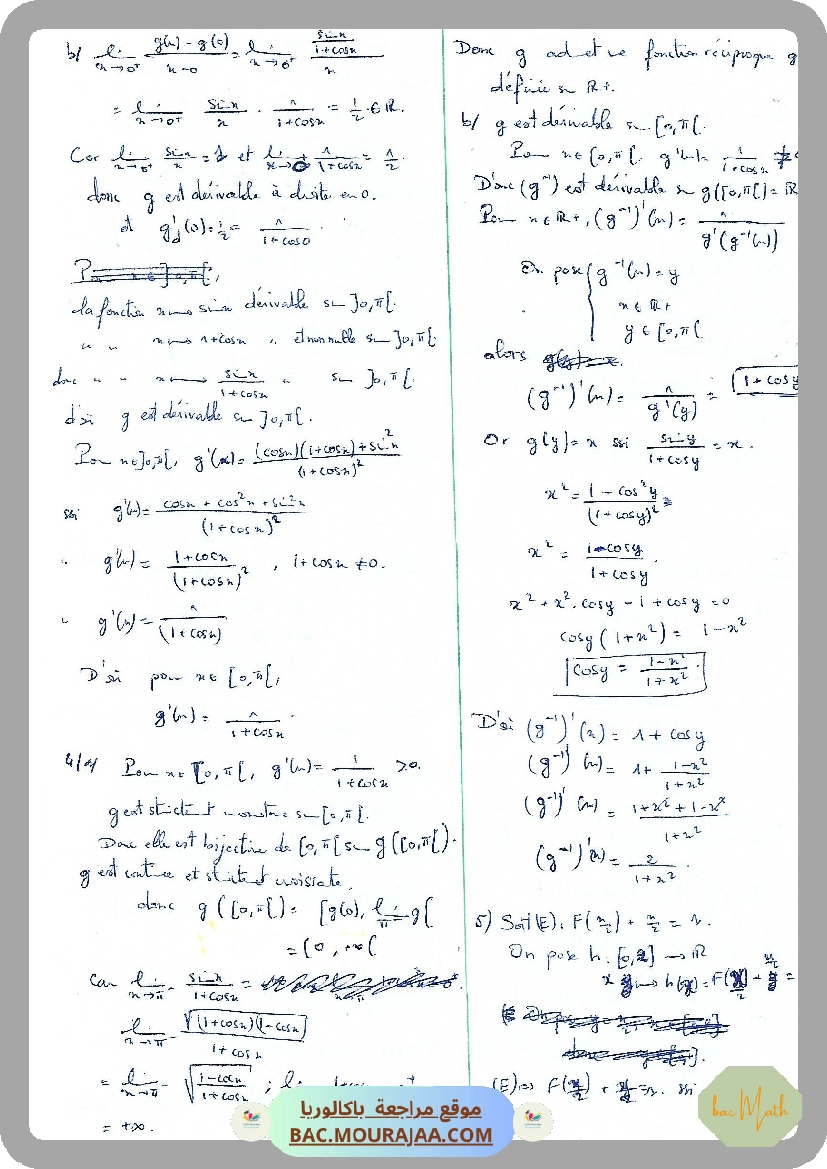 b/ lim_{x→0⁺} (g(x) - g(0))/(x-0) = lim_{x→0⁺} (sin x/(1+cos x))/x
= lim_{x→0⁺} (sin x)/x · 1/(1+cos x) = 1/2 ∈ ℝ.
Car lim_{x→0⁺} (sin x)/x = 1 et lim_{x→0⁺} 1/(1+cos x) = 1/2
donc g est dérivable à droite en 0.
et g'd(0) = 1/2 = 1/(1+cos 0)
la fonction x ↦ sin x dérivable sur ]0,π[.
" " x ↦ 1+cos x " et non nulle sur ]0,π[
donc " " x ↦ sin x/(1+cos x) " sur ]0,π[.
d'où g est dérivable sur ]0,π[.
Pour x∈]0,π[, g'(x) = ((cos x)(1+cos x) + sin² x)/(1+cos x)²
ssi g'(x) = (cos x + cos² x + sin² x)/(1+cos x)²
" g'(x) = (1+cos x)/(1+cos x)² , 1+cos x ≠ 0.
" g'(x) = 1/(1+cos x)
D'où pour x∈[0,π[,
g'(x) = 1/(1+cos x).
4/a/ Pour x∈[0,π[, g'(x) = 1/(1+cos x) > 0.
g est strictement monotone sur [0,π[.
Donc elle est bijective de [0,π[ sur g([0,π[).
g est continue et strictement croissante.
donc g([0,π[) = [g(0), lim_{π⁻} g[
= [0, +∞[
car lim_{x→π⁻} sin x/(1+cos x) =
lim_{x→π⁻} √((1+cos x)(1-cos x))/(1+cos x)
= lim_{x→π⁻} √((1-cos x)/(1+cos x)) ;
= +∞.
Donc g admet une fonction réciproque g
définie sur ℝ+.
b/ g est dérivable sur [0,π[.
Pour x∈[0,π[, g'(x) = 1/(1+cos x) ≠
Donc (g⁻¹) est dérivable sur g([0,π[) = ℝ
Pour x∈ℝ+, (g⁻¹)'(x) = 1/g'(g⁻¹(x))
On pose { g⁻¹(x) = y
x ∈ ℝ+
y ∈ [0,π[
alors
(g⁻¹)'(x) = 1/g'(y) = 1+cos y
Or g(y) = x ssi sin y/(1+cos y) = x.
x² = (1-cos² y)/(1+cos y)²
x² = (1-cos y)/(1+cos y).
x² + x².cos y - 1 + cos y = 0
cos y (1+x²) = 1-x²
cos y = (1-x²)/(1+x²).
D'où (g⁻¹)'(x) = 1 + cos y
(g⁻¹)'(x) = 1 + (1-x²)/(1+x²)
(g⁻¹)'(x) = (1+x²+1-x²)/(1+x²)
(g⁻¹)'(x) = 2/(1+x²).
5) Soit (E): F(x/2) + x/2 = 1.
On pose h: [0,2] → ℝ
x ↦ h(x) = F(x/2) + x/2 =
(E) ⇔ F(x/2) + x/2 = 1. ssi
موقع مراجعة باكالوريا
BAC.MOURAJAA.COM
bacMath